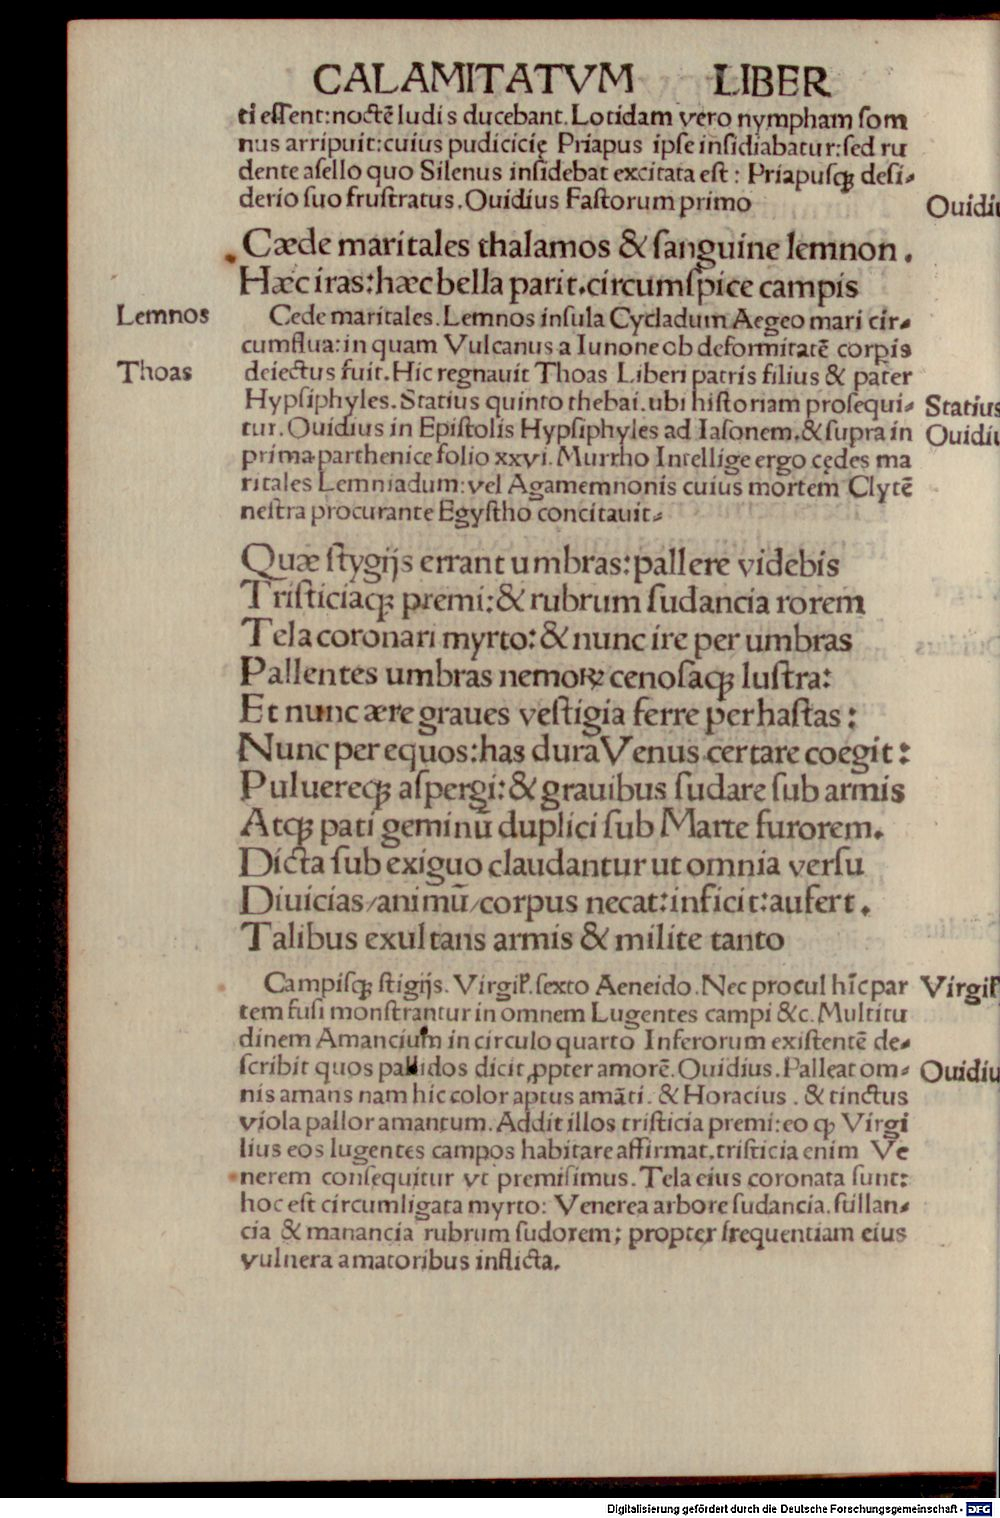 CALAMITATVM LIBER
ti eſſent:noctē ludis ducebant.Lotidam vero nympham ſom
nus arripuit:cuius pudicicię Priapus ipſe inſidiabatur:ſed ru
dente aſello quo Silenus inſidebat excitata eſt: Priapuſqꝫ deſi-
derio ſuo fruſtratus.Ouidius Faſtorum primo
Ouidiu
Cæde maritales thalamos & ſanguine lemnon.
Hæc iras:hæc bella parit.circumſpice campis
Lemnos
Cede maritales.Lemnos inſula Cycladum Aegeo mari cir-
cumflua:in quam Vulcanus a Iunone ob deformitatē corpis
Thoas
deiectus fuit.Hic regnauit Thoas Liberi patris filius & pater
Hypſiphyles.Statius quinto thebai.ubi hiſtoriam proſequi-
Statius
tur.Ouidius in Epiſtolis Hypſiphyles ad Iaſonem.& ſupra in
Ouidiu
prima parthenice folio xxvi.Murrho Intellige ergo cędes ma
ritales Lemniadum:vel Agamemnonis cuius mortem Clytē
neſtra procurante Egyſtho concitauit-
Quæ ſtygijs errant umbras:pallere videbis
Triſticiaqꝫ premi:& rubrum ſudancia rorem
Tela coronari myrto:& nunc ire per umbras
Pallentes umbras nemoꝝ cenoſaqꝫ luſtra:
Et nunc ære graues veſtigia ferre per haſtas:
Nunc per equos:has dura Venus certare coegit:
Puluereqꝫ aſpergi:& grauibus ſudare ſub armis
Atqꝫ pati geminū duplici ſub Marte furorem.
Dicta ſub exiguo claudantur ut omnia verſu
Diuicias/animū/corpus necat:inficit:aufert.
Talibus exultans armis & milite tanto
Campiſqꝫ ſtigijs.Virgil̕.ſexto Aeneido.Nec procul hīc par
Virgil̕
tem fuſi monſtrantur in omnem Lugentes campi &c.Multitu
dinem Amancium in circulo quarto Inferorum exiſtentē de-
ſcribit quos pallidos dicit ꝓpter amorē.Ouidius.Palleat om-
Ouidiu
nis amans nam hic color aptus amāti.& Horacius.& tinctus
viola pallor amantum.Addit illos triſticia premi:eo qꝫ Virgi
lius eos lugentes campos habitare affirmat.triſticia enim Ve
nerem conſequitur vt premiſimus.Tela eius coronata ſunt:
hoc eſt circumligata myrto: Venerea arbore ſudancia.ſtillan-
cia & manancia rubrum ſudorem; propter frequentiam eius
vulnera amatoribus inflicta.
Digitalisierung gefördert durch die Deutsche Forschungsgemeinschaft - DFG